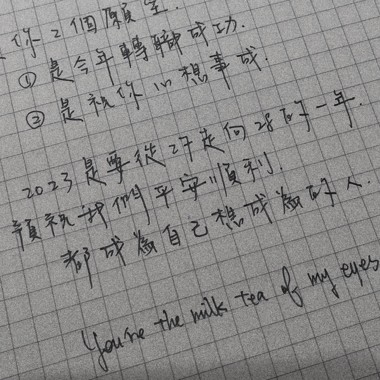 你2個願望.
① 是今年轉職成功.
② 是祝你心想事成.
2023是要從27走向28的一年.
願祝我們平安順利.
都成為自己想成為的人.
You're the milk tea of my eyes